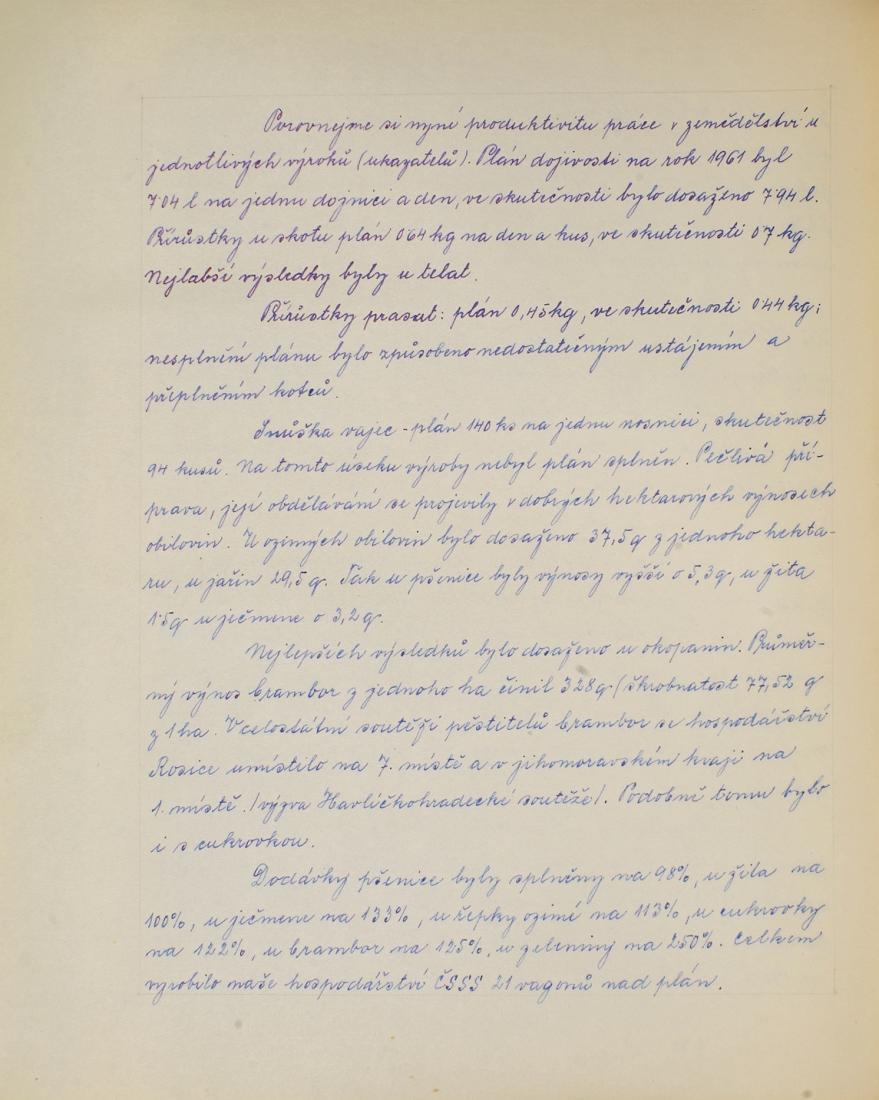 Porovnejme si nyní produktivitu práce v zemědělství u
jednotlivých výroků (ukazatelů). Plán dojivosti na rok 1961 byl
7˙04 l na jednu dojnici a den, ve skutečnosti bylo dosaženo 7˙94 l.
Přírůstky u skotu plán 0˙64 kg na den a kus, ve skutečnosti 0˙7 kg.
Nejlabší výsledky byly u telat.
Přírůstky prasat: plán 0,45 kg, ve skutečnosti 0˙44 kg;
nesplnění plánu bylo způsobeno nedostatečným ustájením a
přeplněním kotců.
Snůška vajec - plán 140 ks na jednu nosnici, skutečnost
94 kusů. Na tomto úseku výroby nebyl plán splněn. Pečlivá pří-
prava, její obdělávání se projevily v dobrých hektarových výnosech
obilovin. U ozimných obilovin bylo dosaženo 37,5 q z jednoho hekta-
ru, u jařin 29,5 q. Tak u pšenice byly výnosy vyšší o 5,3 q, u žita
1˙5 q u ječmene o 3,2 q.
Nejlepších výsledků bylo dosaženo u okopanin. Průměr-
ný výnos brambor z jednoho ha činil 328 q /škrobnatost 77,52 q
z 1 ha. V celostátní soutěži pěstitelů brambor se hospodářství
Rosice umístilo na 7. místě a v jihomoravském kraji na
1. místě. /výzva Havlíčkohradecké soutěže/. Podobně tomu bylo
i s cukrovkou.
Dodávky pšenice byly splněny na 98%, u žita na
100%, u ječmene na 133%, u řepky ozimé na 113%, u cukrovky
na 122%, u brambor na 125%, u zeleniny na 250%. Celkem
vyrobilo naše hospodářství ČSSS 21 vagonů nad plán.